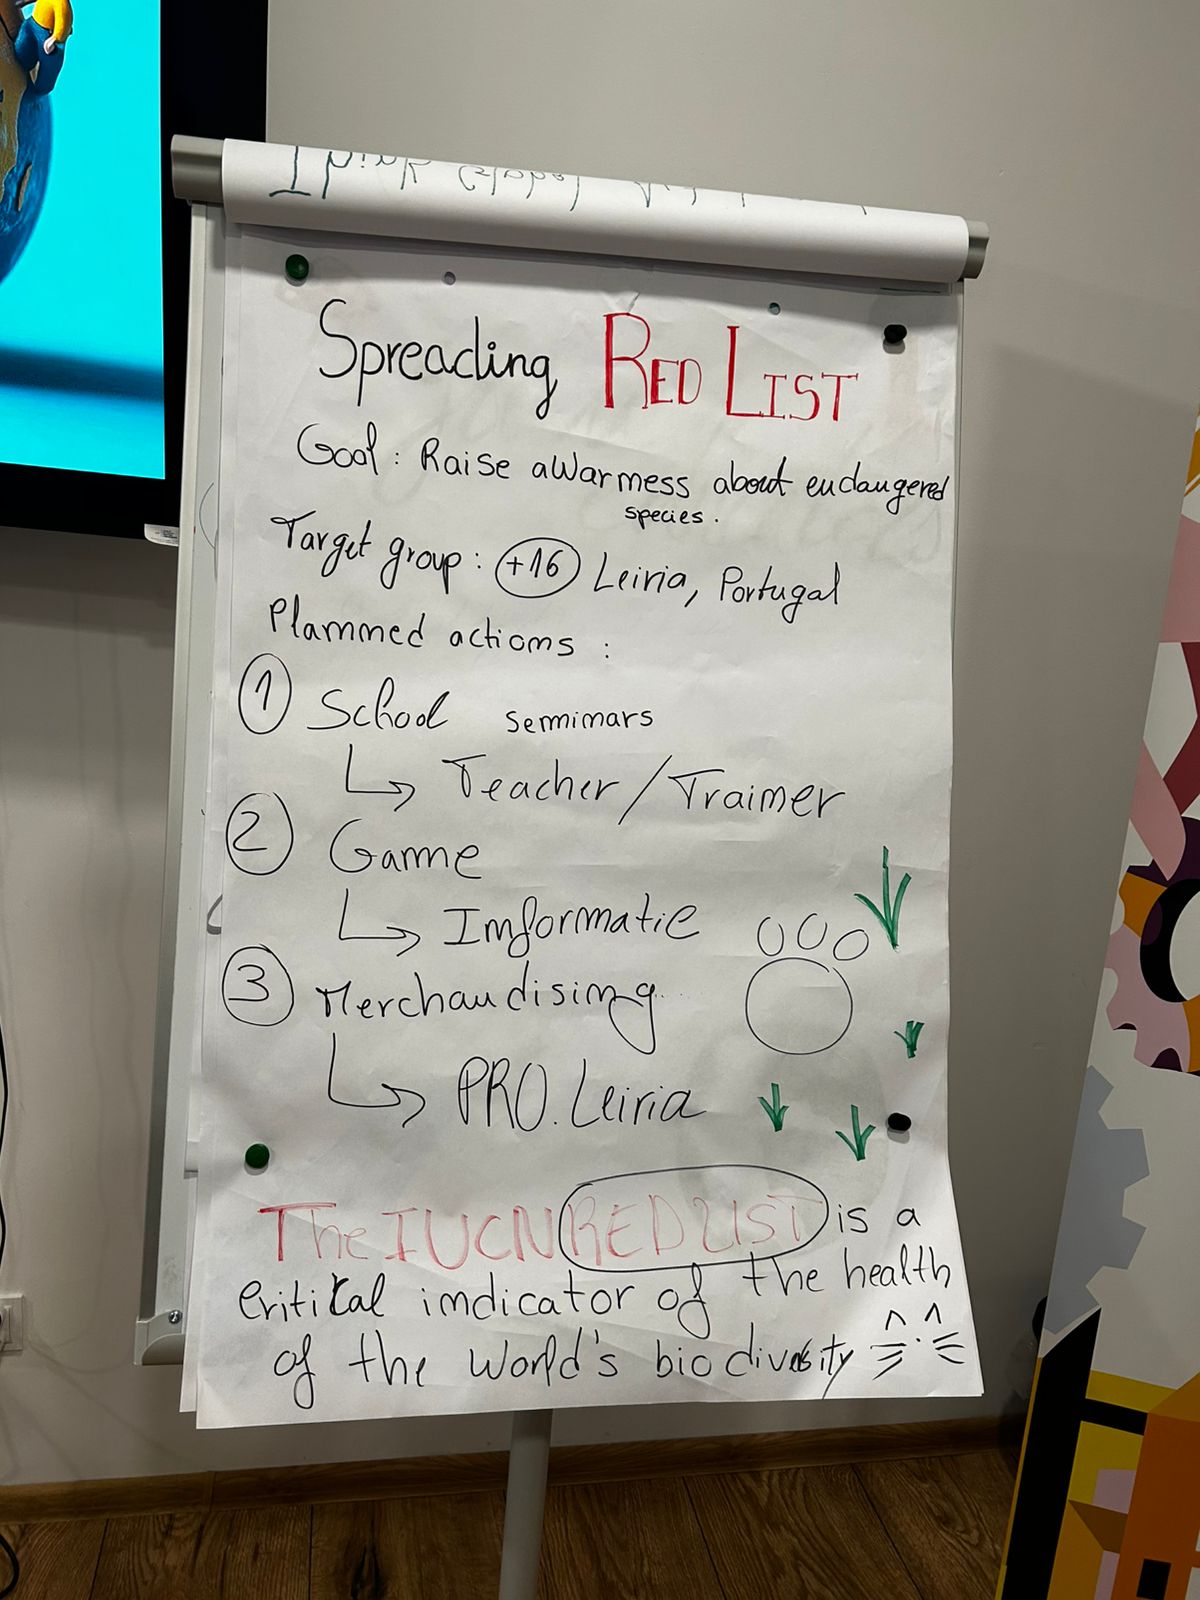 Think Global
Spreading RED LIST
Goal: Raise awarmess about endangered
species.
Target group: +16 Leiria, Portugal
Plammed actioms :
1 School semimars
Teacher/Traimer
2 Game
Imformatic
3 Merchandisimg
PRO. Leiria
The IUCN RED LIST is a
critical imdicator of the health
of the world's biodiversity